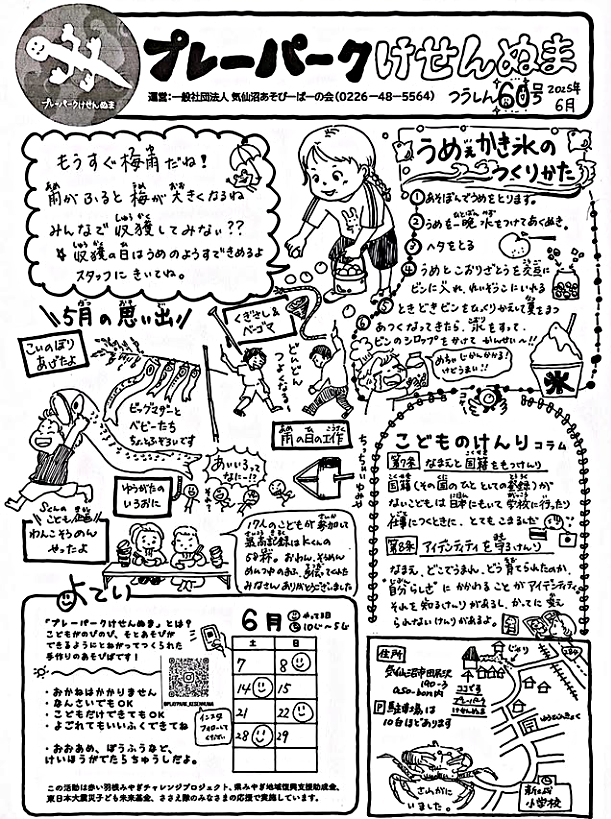 プレーパークけせんぬま
プレーパークけせんぬま
運営:一般社団法人 気仙沼あそびーばーの会(0226-48-5564)
つうしん60号
2025年
6月
もうすぐ梅雨だね!
雨がふると梅が大きくなるね
みんなで収穫してみない??
収穫の日はうめのようすできめるよ
スタッフにきいてね。
うめぇかき氷の
つくりかた
①あそぼんでうめをとります。
②うめを一晩水をつけてあくぬき。
③ヘタをとる
④うめとこおりざとうを交互に
ビンに入れ、れいぞうこにいれる
⑤ときどきビンをひっくりかえして夏をまつ
⑥あつくなってきたら、氷をすって、
ビンのシロップをかけて かんせいー!!
めちゃじかんかかる!
けどうまい!!
氷
5月の思い出
こいのぼり
あげたよ
ビッグマターと
ベビーたち
くぎさし&
ベーゴマ
どんどん
つよくなる〜
雨の日の工作
ゆうがたの
いろおに
あいいろって
なにー!?
こども企画
わんこそうめん
やったよ
17人のこどもが参加して
最高記録はKくんの
59杯。おわん、そうめん
みなさんありがとうございました
こどものけんりコラム
第7条 なまえと国籍をもつけんり
国籍(その国のひととしての登録)が
ないこどもは日本にもいて学校に行ったり
仕事につくときに、とてもこまるんだ
第8条 アイデンティティを守るけんり
なまえ、どこでうまれ、どう育てられたのか、
"自分らしさ"にかかわることがアイデンティティ
それを知るけんりがあるし、かってに変え
られないけんりがあるよ。
よてい
「プレーパークけせんぬま」とは?
こどもがのびのび、もとあそびが
できるようにとねがってつくられた
手作りのあそびばです!
・おかねはかかりません
・なんさいでもOK
・こどもだけできてもOK
・よごれてもいいふくできてね
・おおあめ、ぼうふうなど、
けいほうがでたらちゅうしだよ。
@PLAYPARK_KESENNUMA
インスタ
フォローして
ください
6月
やってる日
10じ〜5じ
土 日
7 8
14 15
21 22
28 29
この活動は赤い羽根みやぎチャレンジプロジェクト、県みやぎ地域復興支援助成金、
東日本大震災子ども未来基金、ささえ隊のみなさまの応援で実施しています。
住所
気仙沼市田尻沢
190-3
あそぼん内
P駐車場は
10台ほどあります
じゃり
284
ココです
プレーパーク
けせんぬま
新月
小学校
さわがに
いました。